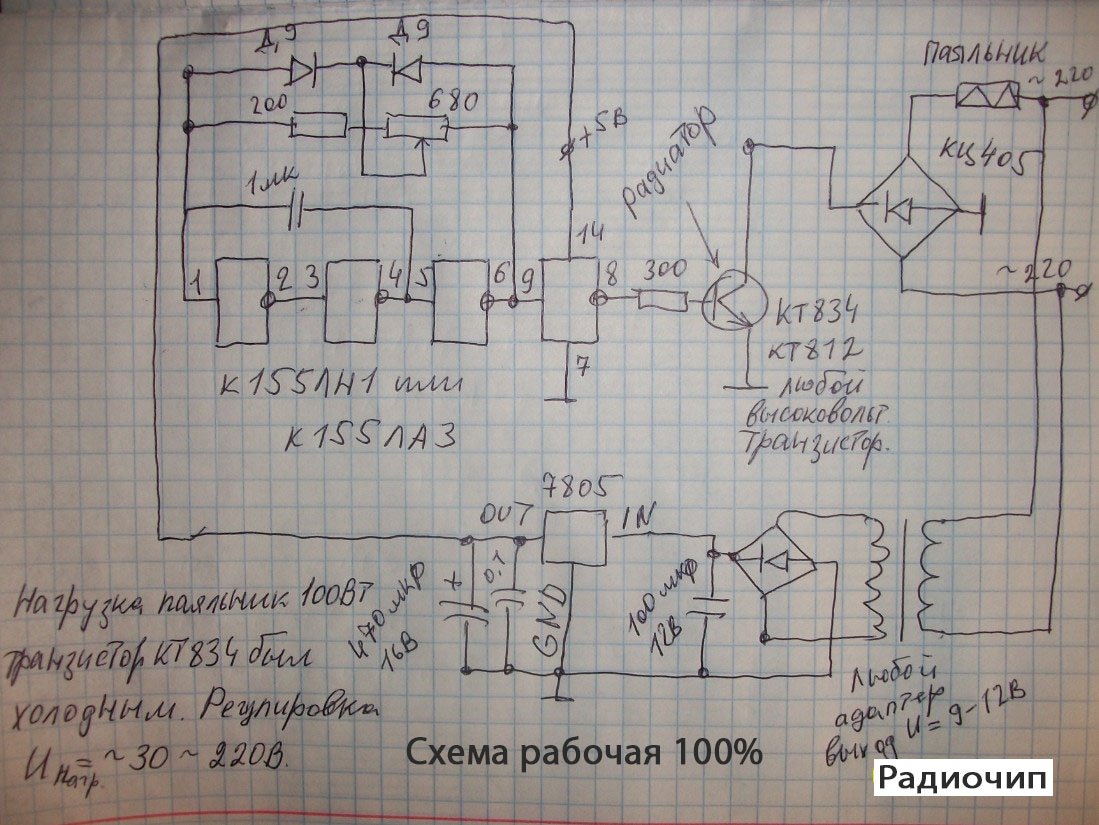 Д,9
Д9
200
680
1мк
+5В
Паяльник
~220
КЦ405
радиатор
~220
1
2
3
4
5
6
9
14
8
7
300
КТ834
КТ812
любой
высоковольт.
транзистор.
К155ЛН1 или
К155ЛА3
7805
OUT
IN
GND
+
470мкф
16В
0.1
100мкф
12В
любой
адаптер
выход U= 9-12В
Нагрузка паяльник 100Вт
транзистор КТ834 был
холодным. Регулировка
Uнагр. = ~30 ~ 220В.
Схема рабочая 100%
Радиочип